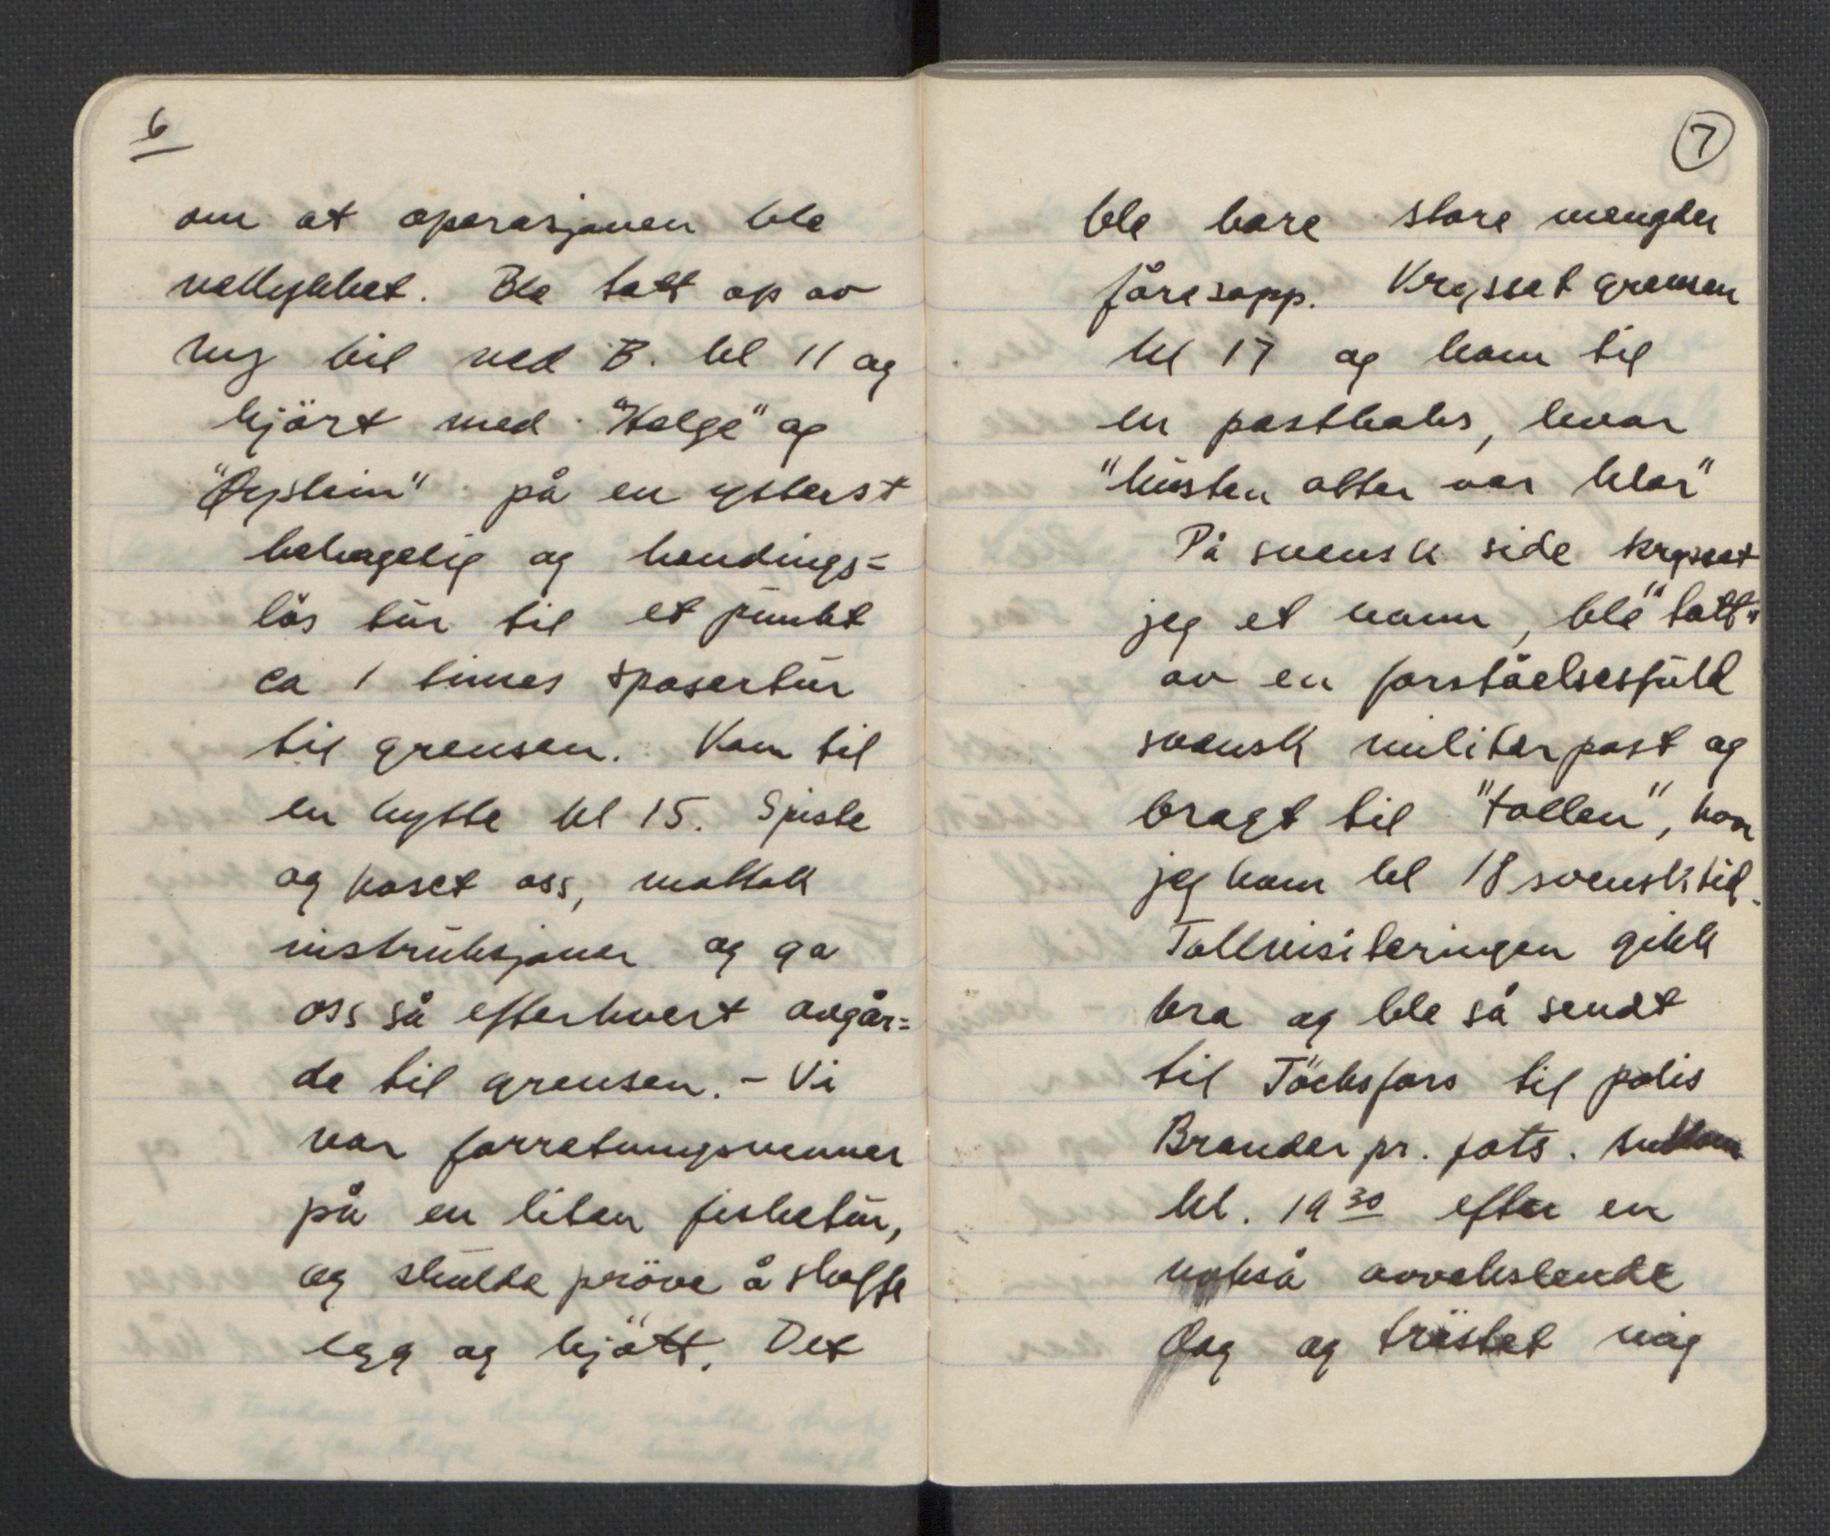 6
om at operasjonen ble
vellykket. Ble tatt op av
ny bil ved B. kl 11 og
kjört med "Helge" og
"Øystein" på en ytterst
behagelig og hendings=
lös tur til et punkt
ca 1 times spasertur
til grensen. Kom til
en hytte kl 15. Spiste
og koset oss, mottok
instruksjoner og ga
oss så efterhvert avgår=
de til grensen. - Vi
var forretningsvenner
på en liten fisketur,
og skulde pröve å skaffe
egg og kjött. Det
7
ble bare store mengder
fåresopp. Krysset grensen
kl 17 og kom til
en postboks, hvor
"kusten atter var klar"
På svensk side krysset
jeg et vann, ble "tatt"
av en forståelsesfuld
svensk militærpost og
bragt til "tollen", hvor
jeg kom kl 18 svensk tid.
Tollvisiteringen gikk
bra og ble så sendt
til Töcksfors til polis
Brander pr. fots.
kl. 19 30 efter en
nokså avvekslende
dag og tröstet mig